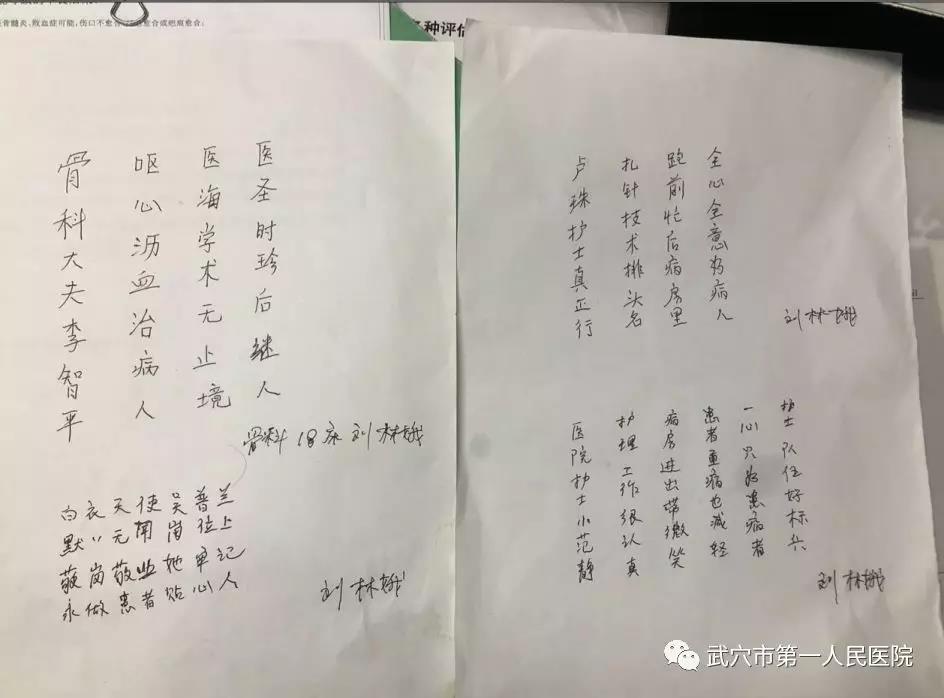 骨髓炎、败血症可能;伤口不愈合
愈合或疤痕愈合;
种评估
骨科大夫李智平
呕心沥血治病人
医海学术无止境
医圣时珍后继人
骨科18床 刘林娥
白衣天使吴普兰
默〃无闻岗位上
敬岗敬业她牢记
永做患者贴心人
刘林娥
卢珠护士真正行
扎针技术排头名
跑前忙后病房里
全心全意为病人
刘林娥
医院护士小范静
护理工作很认真
病房进出带微笑
患者重病也减轻
一心只为患病者
护士队伍好标兵
刘林娥
武穴市第一人民医院